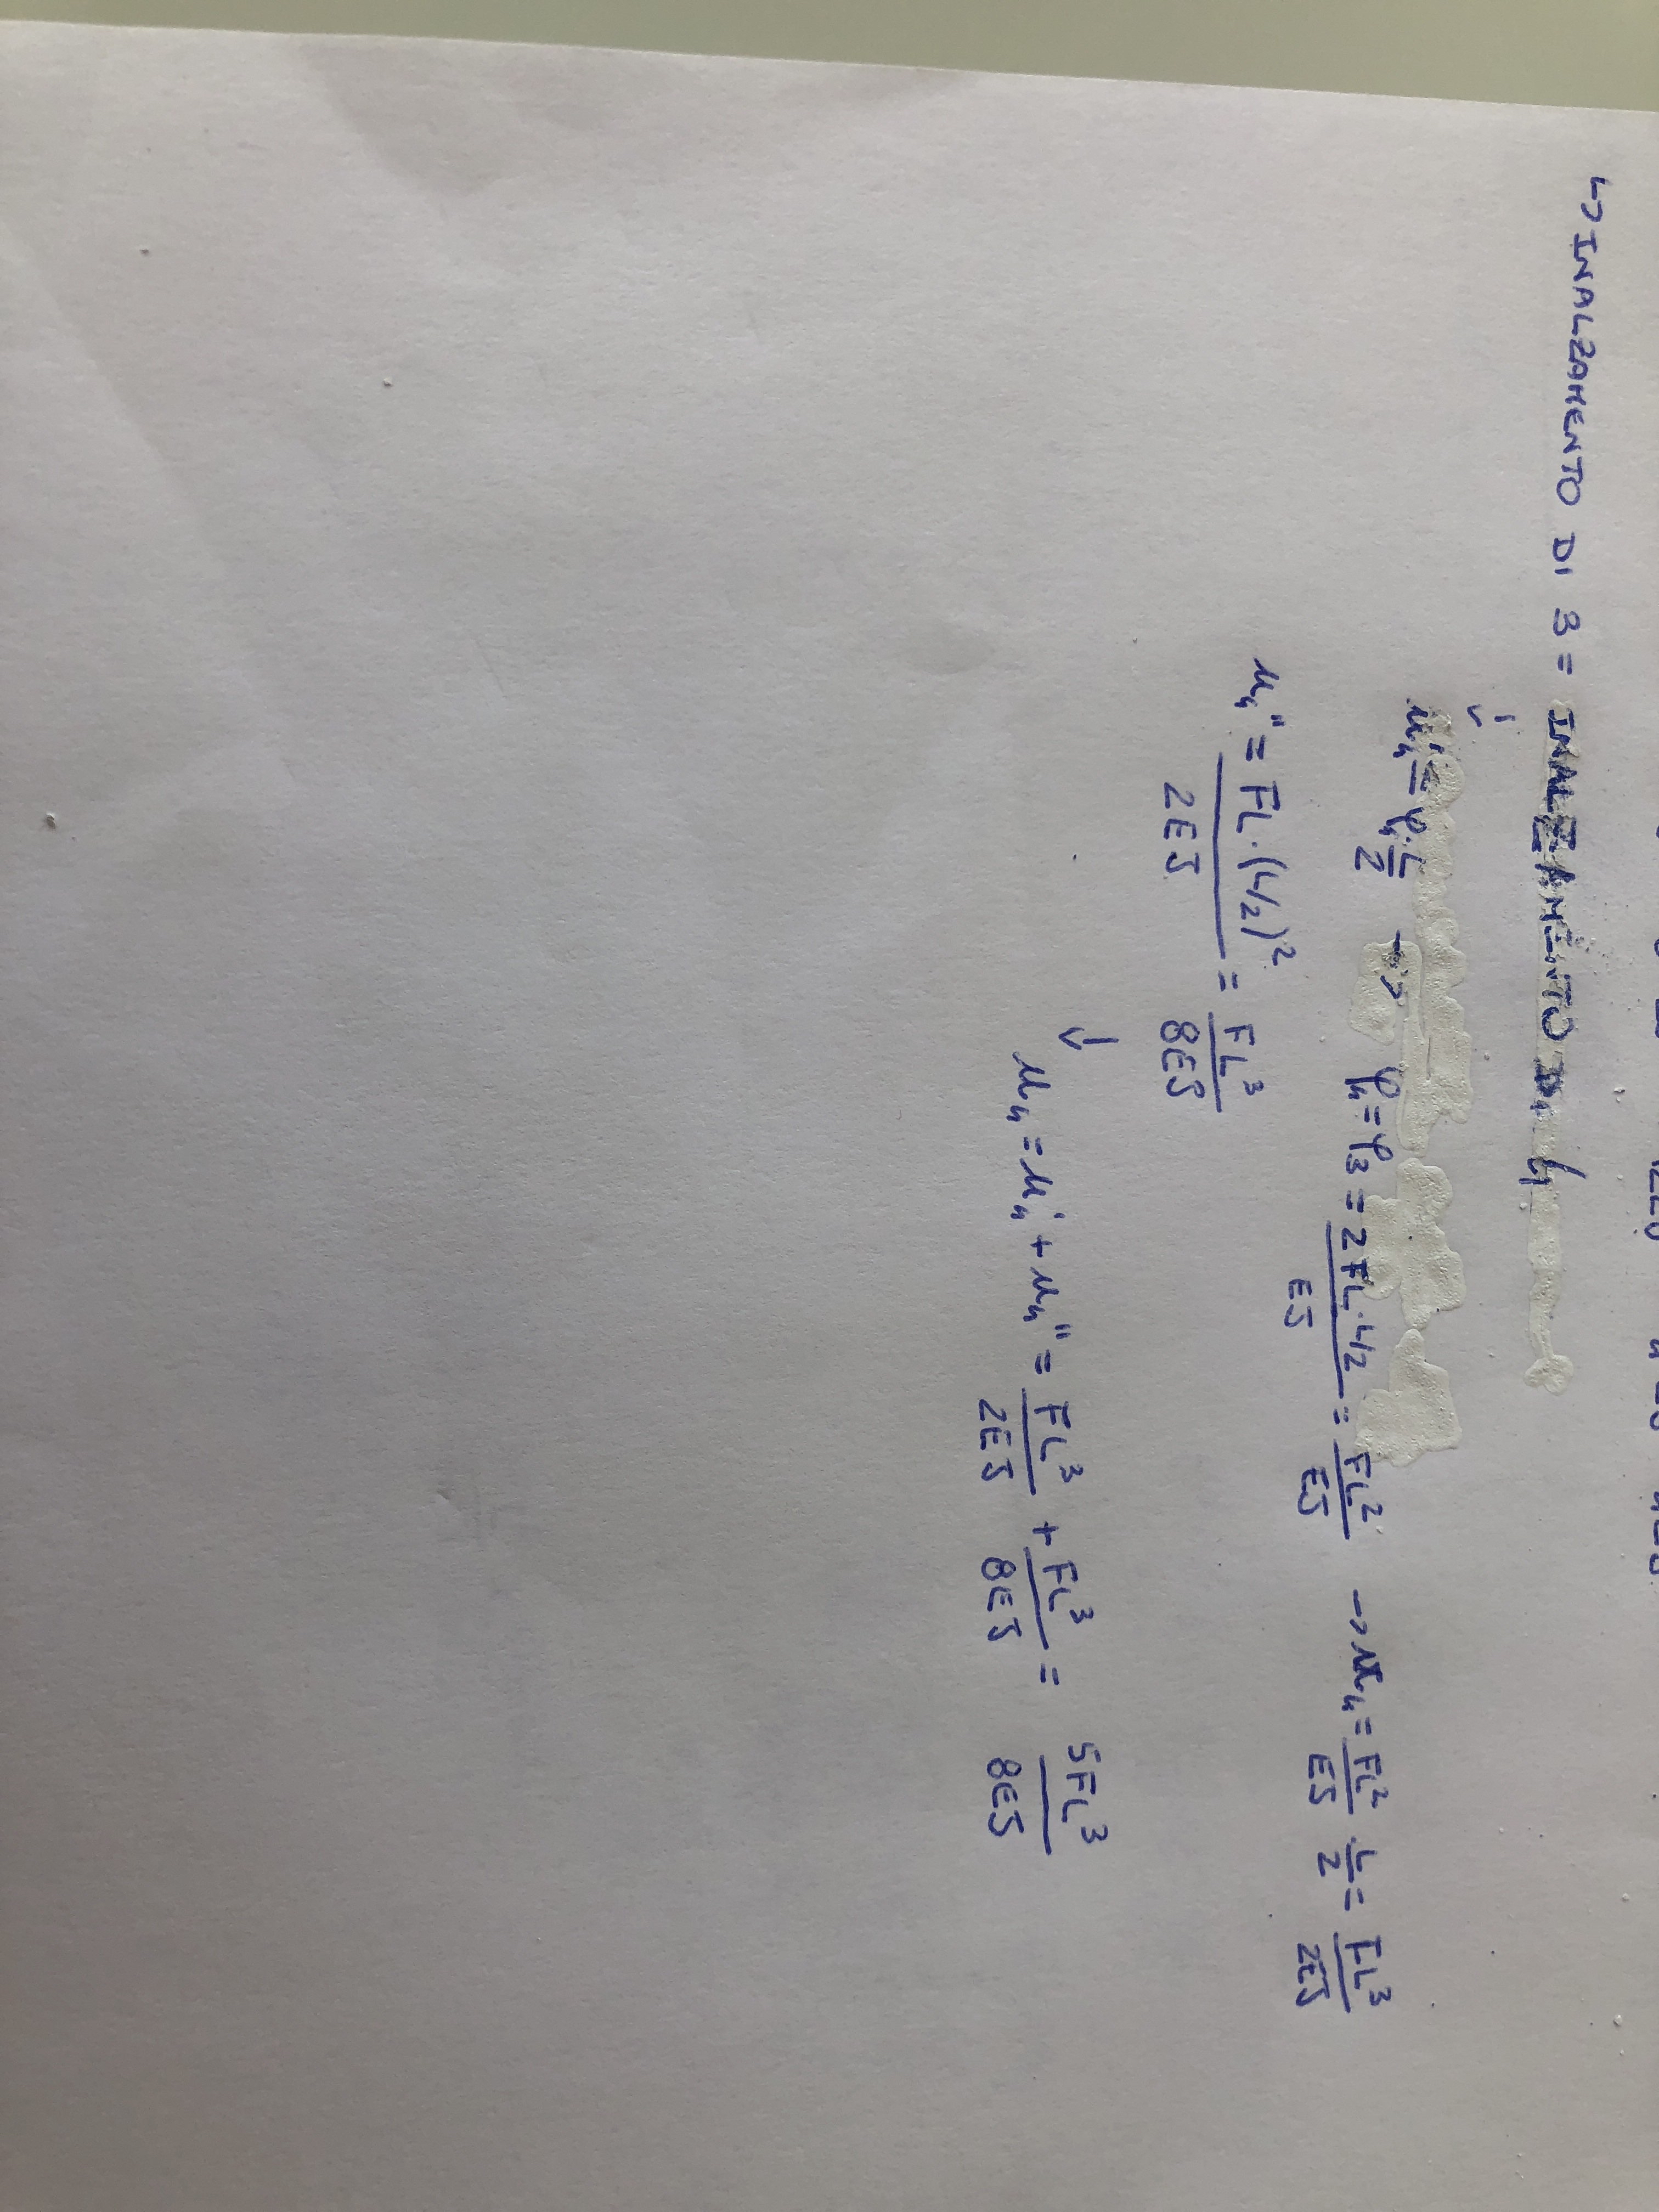 ↳ INALZAMENTO DI 3 = INALZAMENTO DI 4
↓
u₄' = φ₄·L/2 → φ₄ = φ₃ = 2FL·L/2 / EJ = FL²/EJ → u₄ = FL²/EJ · L/2 = FL³/2EJ
u₄'' = FL·(L/2)² / 2EJ = FL³/8EJ
↓
u₄ = u₄' + u₄'' = FL³/2EJ + FL³/8EJ = 5FL³/8EJ